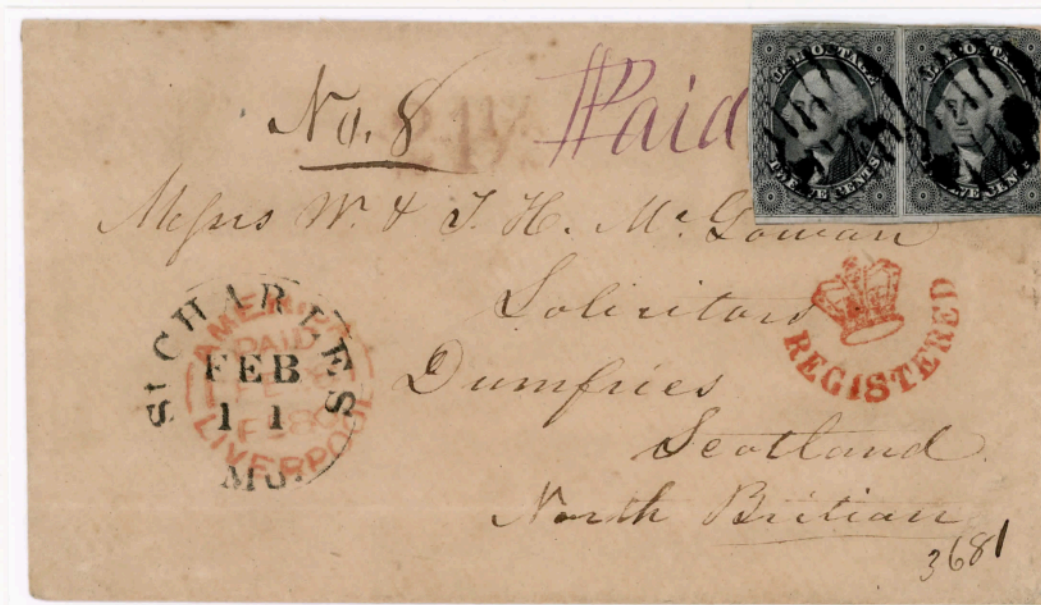 No. 8
Paid
U.S. POSTAGE
U.S. POSTAGE
CENTS
Messrs W. & T. H. McGowan
Solicitors
Dumfries
Scotland
North Britian
3681
St CHARLES
FEB
11
MO.
AMERICA
PAID
LIVERPOOL
REGISTERED